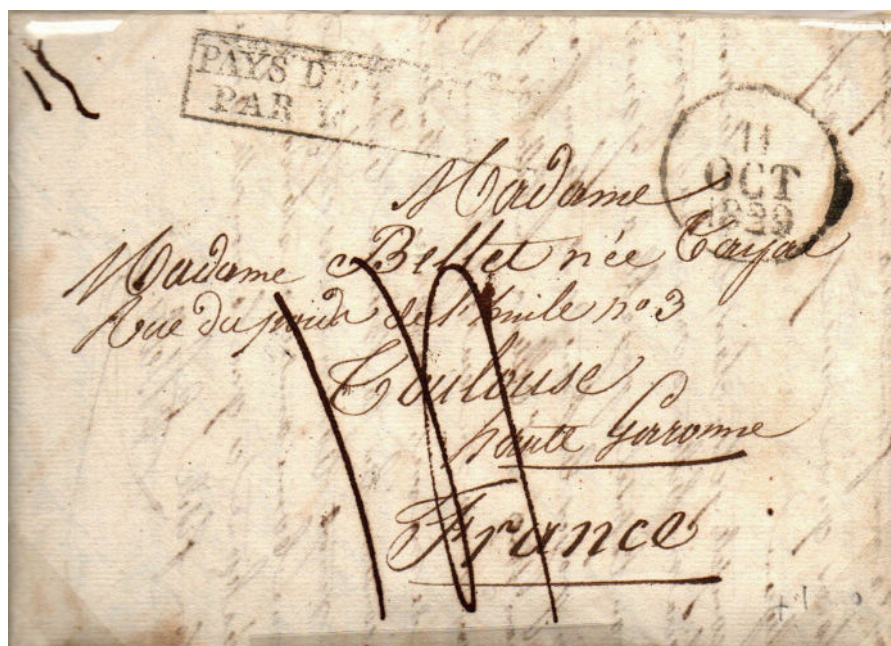 PAYS D
PAR
11
OCT
1829
Madame
Madame Bellet née Cayar
Rue du poids de l'huile no 3
Toulouse
haute Garonne
France